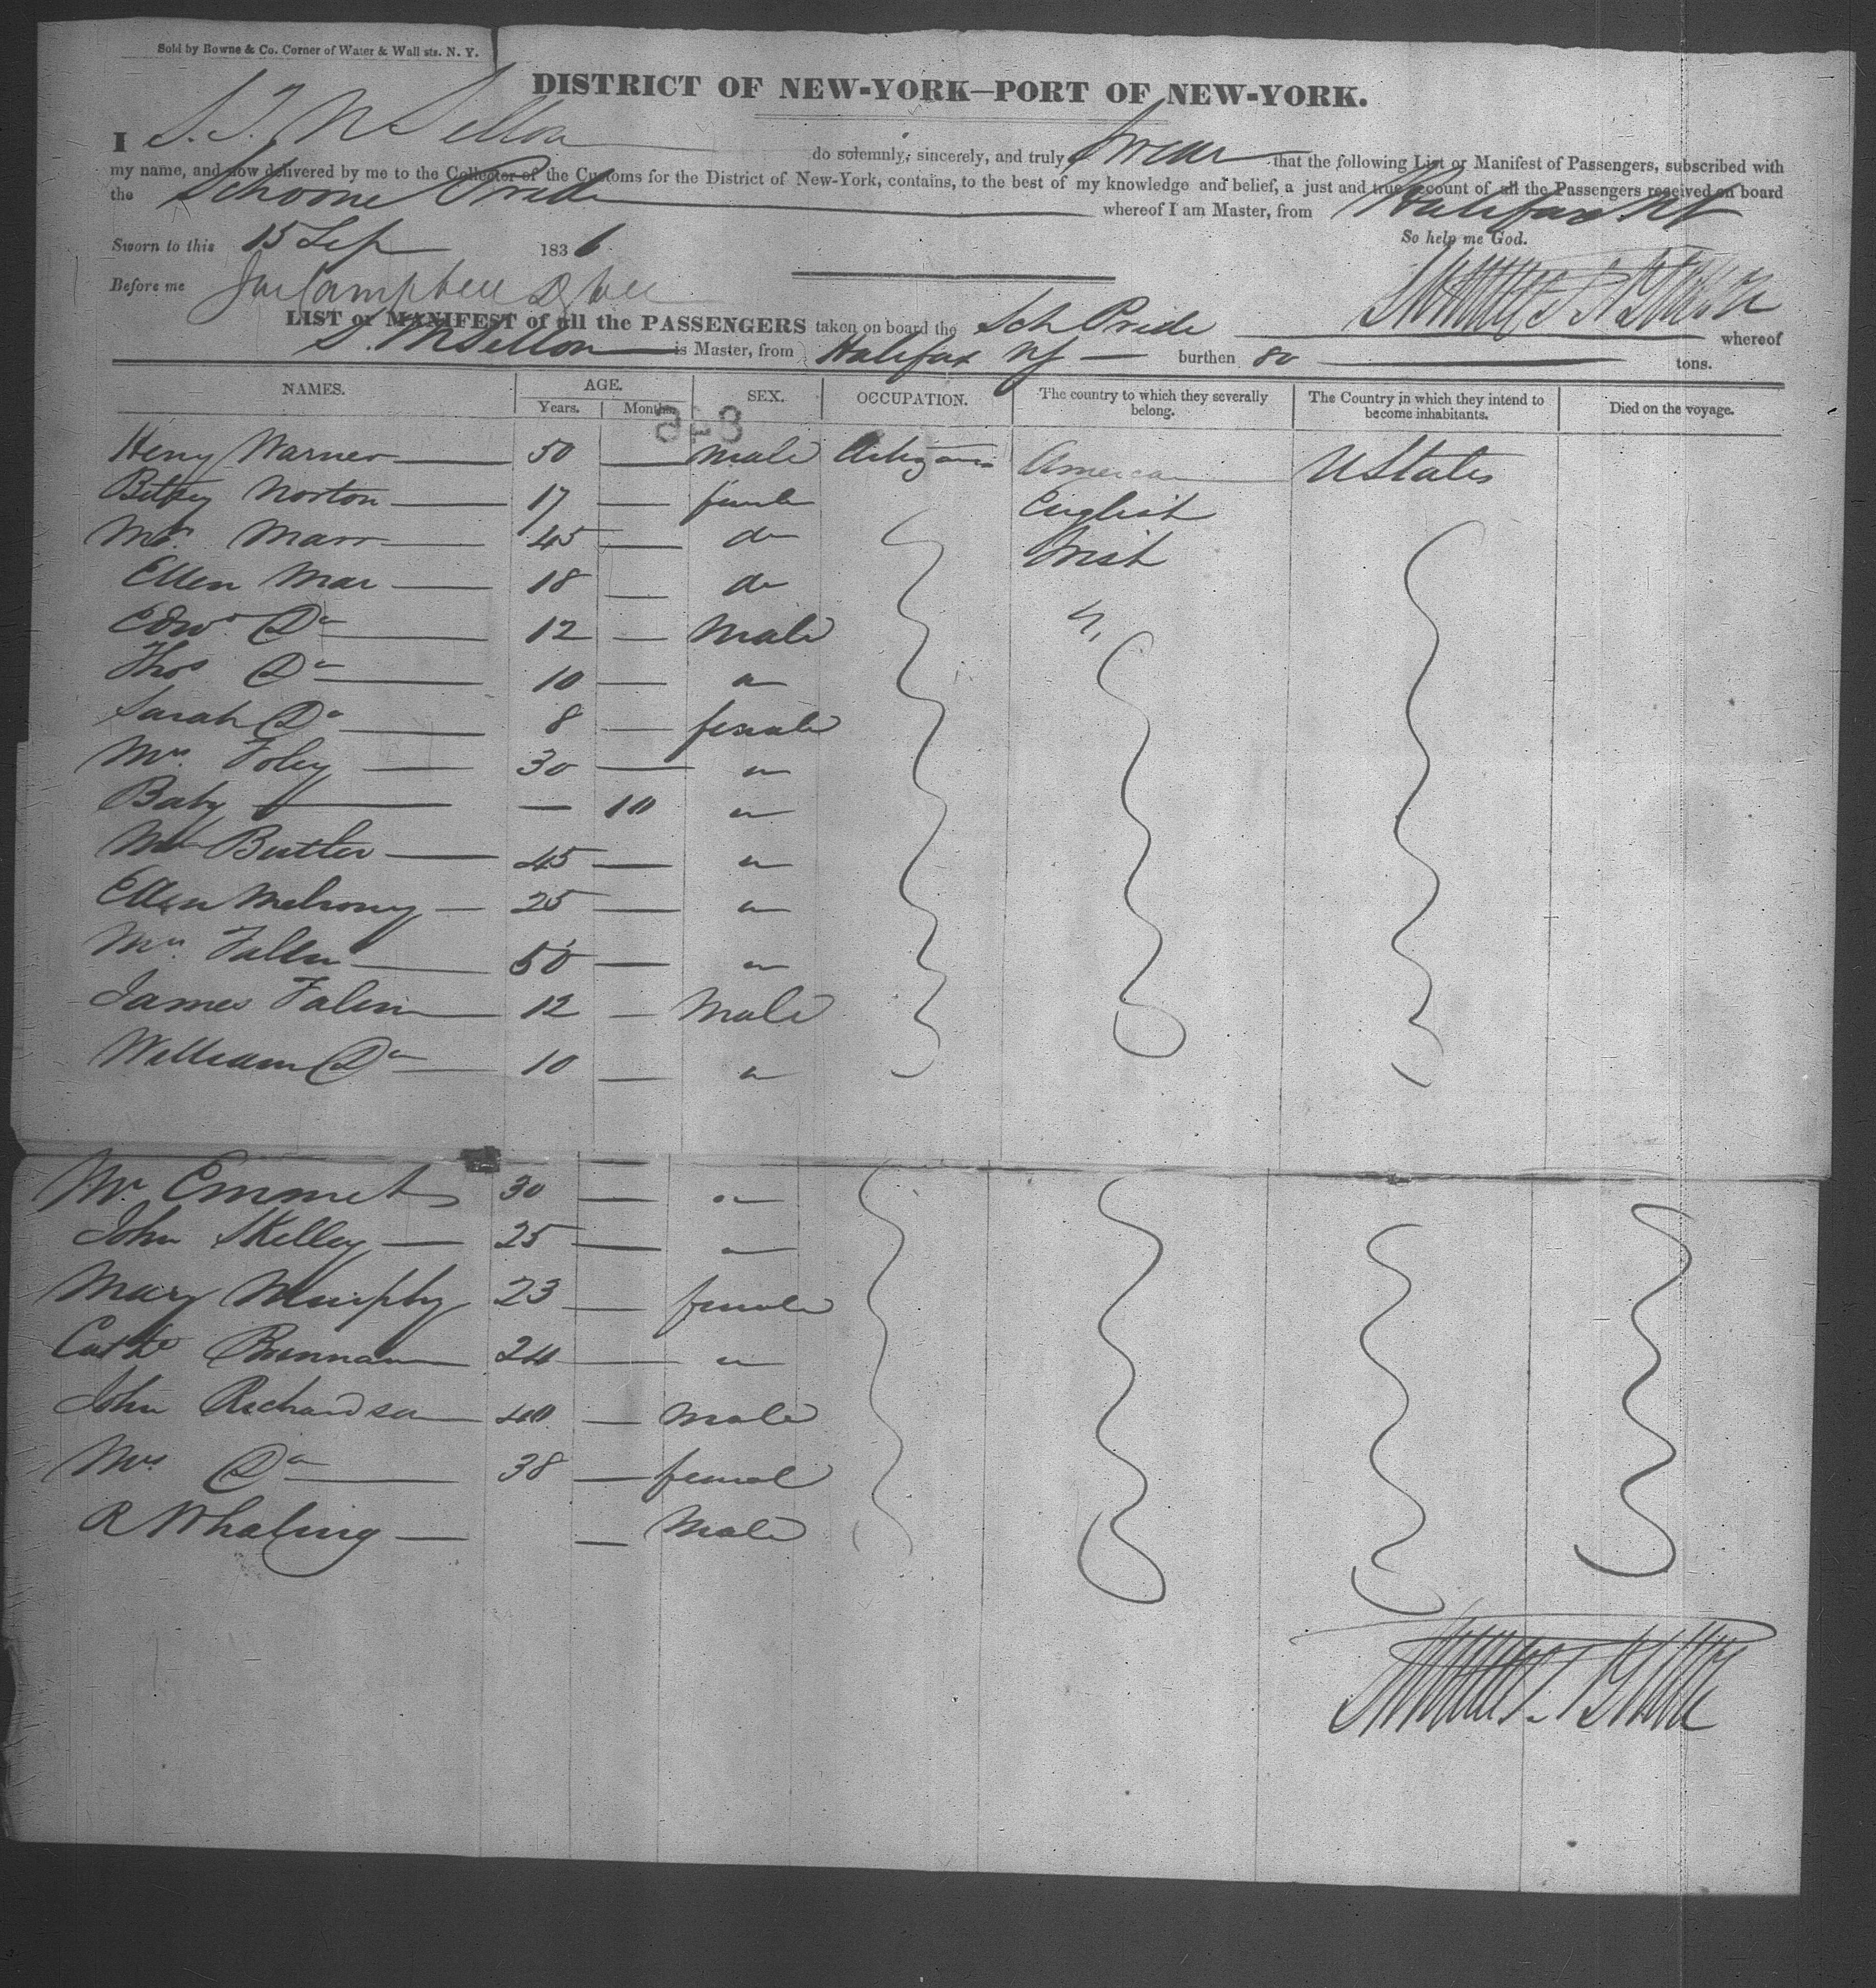 Sold by Bowne & Co. Corner of Water & Wall sts. N. Y.
DISTRICT OF NEW-YORK—PORT OF NEW-YORK.
I S. T. do solemnly, sincerely, and truly swear that the following List or Manifest of Passengers, subscribed with
my name, and now delivered by me to the Collector of the Customs for the District of New-York, contains, to the best of my knowledge and belief, a just and true account of all the Passengers received on board
the Schooner Pride whereof I am Master, from Halifax NS
Sworn to this 15 Sep 1836 So help me God.
Before me Campbell
LIST or MANIFEST of all the PASSENGERS taken on board the Sch Pride whereof
is Master, from Halifax NS burthen 80 tons.
NAMES. AGE. SEX. OCCUPATION. The country to which they severally belong. The Country in which they intend to become inhabitants. Died on the voyage.
Years. Months.
Henry Warner 50 male American U States
Betsey Norton 17 female English
Mrs. Marr 45 do Irish
Ellen Mar 18 do
Edwd. Do 12 Male "
Thos Do 10 "
Sarah Do 8 female
Mrs. Foley 30 "
Baby 10 "
Butler 45 "
Ellen 25 "
Mrs. Fallen 50 "
James Falen 12 Male
William Do 10 "
Mr. Emmet 30 "
John Skelley 25 "
Mary Murphy 23 female
Cathe Brennan 24 "
John Richardson 40 male
Mrs Do 38 femal
R Whaling Male